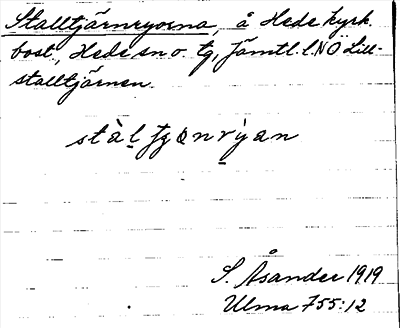 Stalltjärnryorna, å Hede kyrk.
bost., Hede sn o. tg, Jämtl. l. NO Lill-
stalltjärnen.
S. Åsander 1919
Ulma 755:12